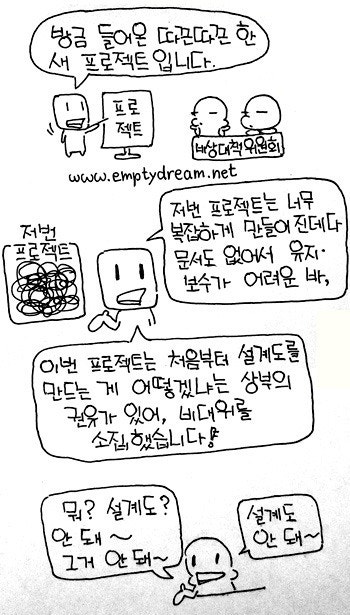 방금 들어온 따끈따끈 한
새 프로젝트 입니다.
프로
젝트
비상대책위원회
www.emptydream.net
저번
프로젝트
저번 프로젝트는 너무
복잡하게 만들어진데다
문서도 없어서 유지·
보수가 어려운 바,
이번 프로젝트는 처음부터 설계도를
만드는 게 어떻겠냐는 상부의
권유가 있어, 비대위를
소집했습니다!
뭐? 설계도?
안 돼~
그거 안 돼~
설계도
안 돼~